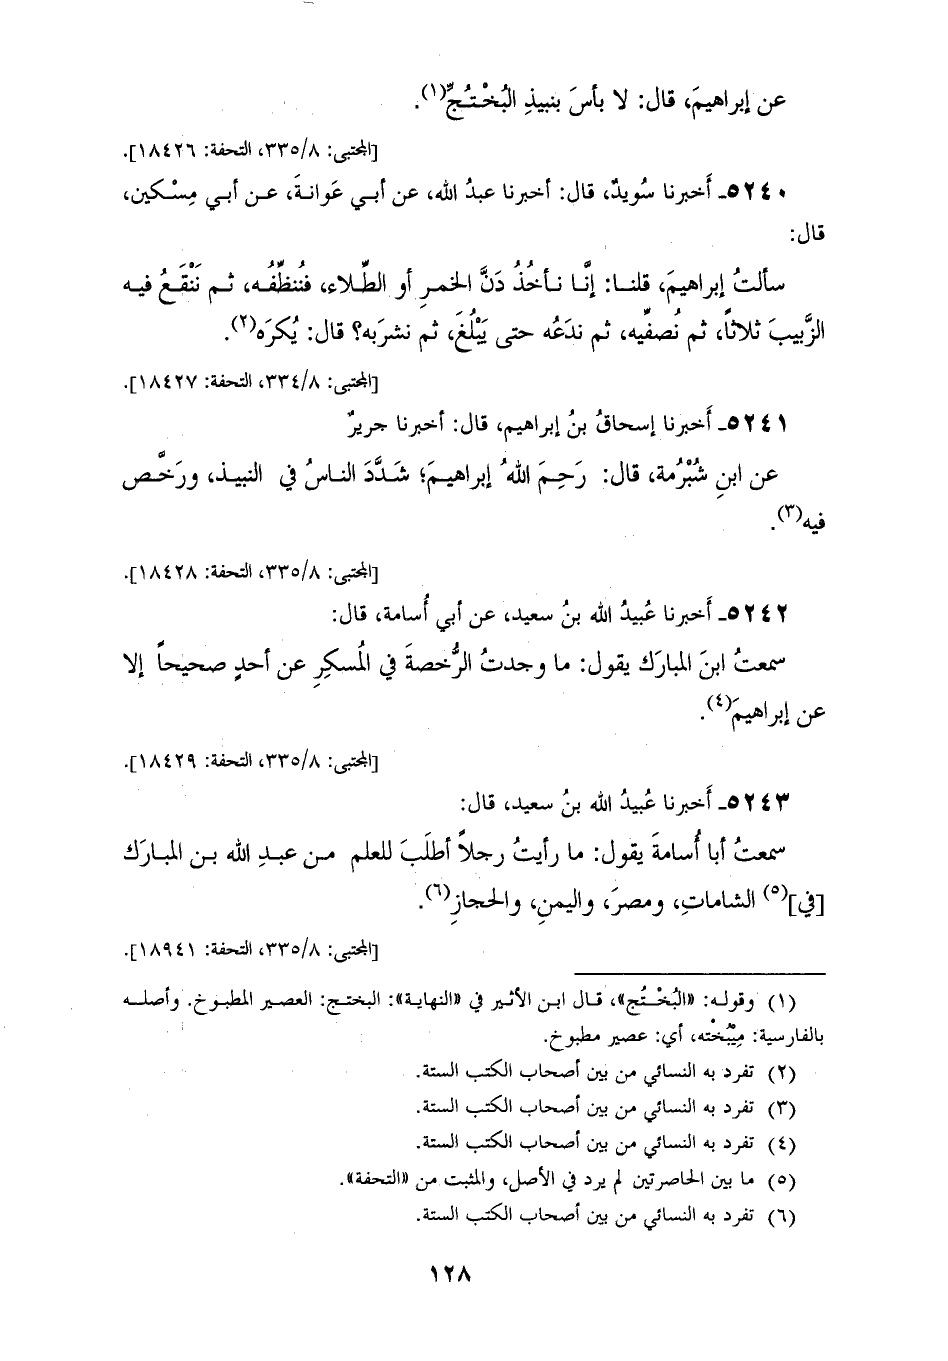 عن إبراهيمَ، قال: لا بأسَ بنبيذِ البُخْتُجِّ(١).
[المجتبى: ٣٣٥/٨، التحفة: ١٨٤٢٦].
٥٢٤٠ـ أَخبرنا سُويدٌ، قال: أخبرنا عبدُ الله، عن أبي عَوانةَ، عن أبي مِسْكين،
قال:
سألتُ إبراهيمَ، قلنا: إنَّا نأخُذُ دَنَّ الخمرِ أو الطِّلاء، فنُنظِّفُه، ثم نَنْقَعُ فيه
الزَّبيبَ ثلاثاً، ثم نُصفِّيه، ثم ندَعُه حتى يَبْلُغَ، ثم نشرَبه؟ قال: يُكرَه(٢).
[المجتبى: ٣٣٤/٨، التحفة: ١٨٤٢٧].
٥٢٤١ـ أَخبرنا إسحاقُ بنُ إبراهيم، قال: أخبرنا جريرٌ
عن ابنِ شُبْرُمة، قال: رَحِمَ اللهُ إبراهيمَ؛ شَدَّدَ الناسُ في النبيذ، ورَخَّص
فيه(٣).
[المجتبى: ٣٣٥/٨، التحفة: ١٨٤٢٨].
٥٢٤٢ـ أَخبرنا عُبيدُ الله بنُ سعيد، عن أبي أُسامة، قال:
سمعتُ ابنَ المبارَك يقول: ما وجدتُ الرُّخصةَ في المُسكِرِ عن أحدٍ صحيحاً إلا
عن إبراهيمَ(٤).
[المجتبى: ٣٣٥/٨، التحفة: ١٨٤٢٩].
٥٢٤٣ـ أَخبرنا عُبيدُ الله بنُ سعيد، قال:
سمعتُ أبا أُسامةَ يقول: ما رأيتُ رجلاً أطلَبَ للعلم من عبدِ الله بن المبارَك
[في](٥) الشاماتِ، ومصرَ، واليمنِ، والحجازِ(٦).
[المجتبى: ٣٣٥/٨، التحفة: ١٨٩٤١].
(١) وقوله: «البُخْتُج»، قال ابن الأثير في «النهاية»: البختج: العصير المطبوخ. وأصله
بالفارسية: مِيْبُخْته، أي: عصير مطبوخ.
(٢) تفرد به النسائي من بين أصحاب الكتب الستة.
(٣) تفرد به النسائي من بين أصحاب الكتب الستة.
(٤) تفرد به النسائي من بين أصحاب الكتب الستة.
(٥) ما بين الحاصرتين لم يرد في الأصل، والمثبت من «التحفة».
(٦) تفرد به النسائي من بين أصحاب الكتب الستة.
١٢٨